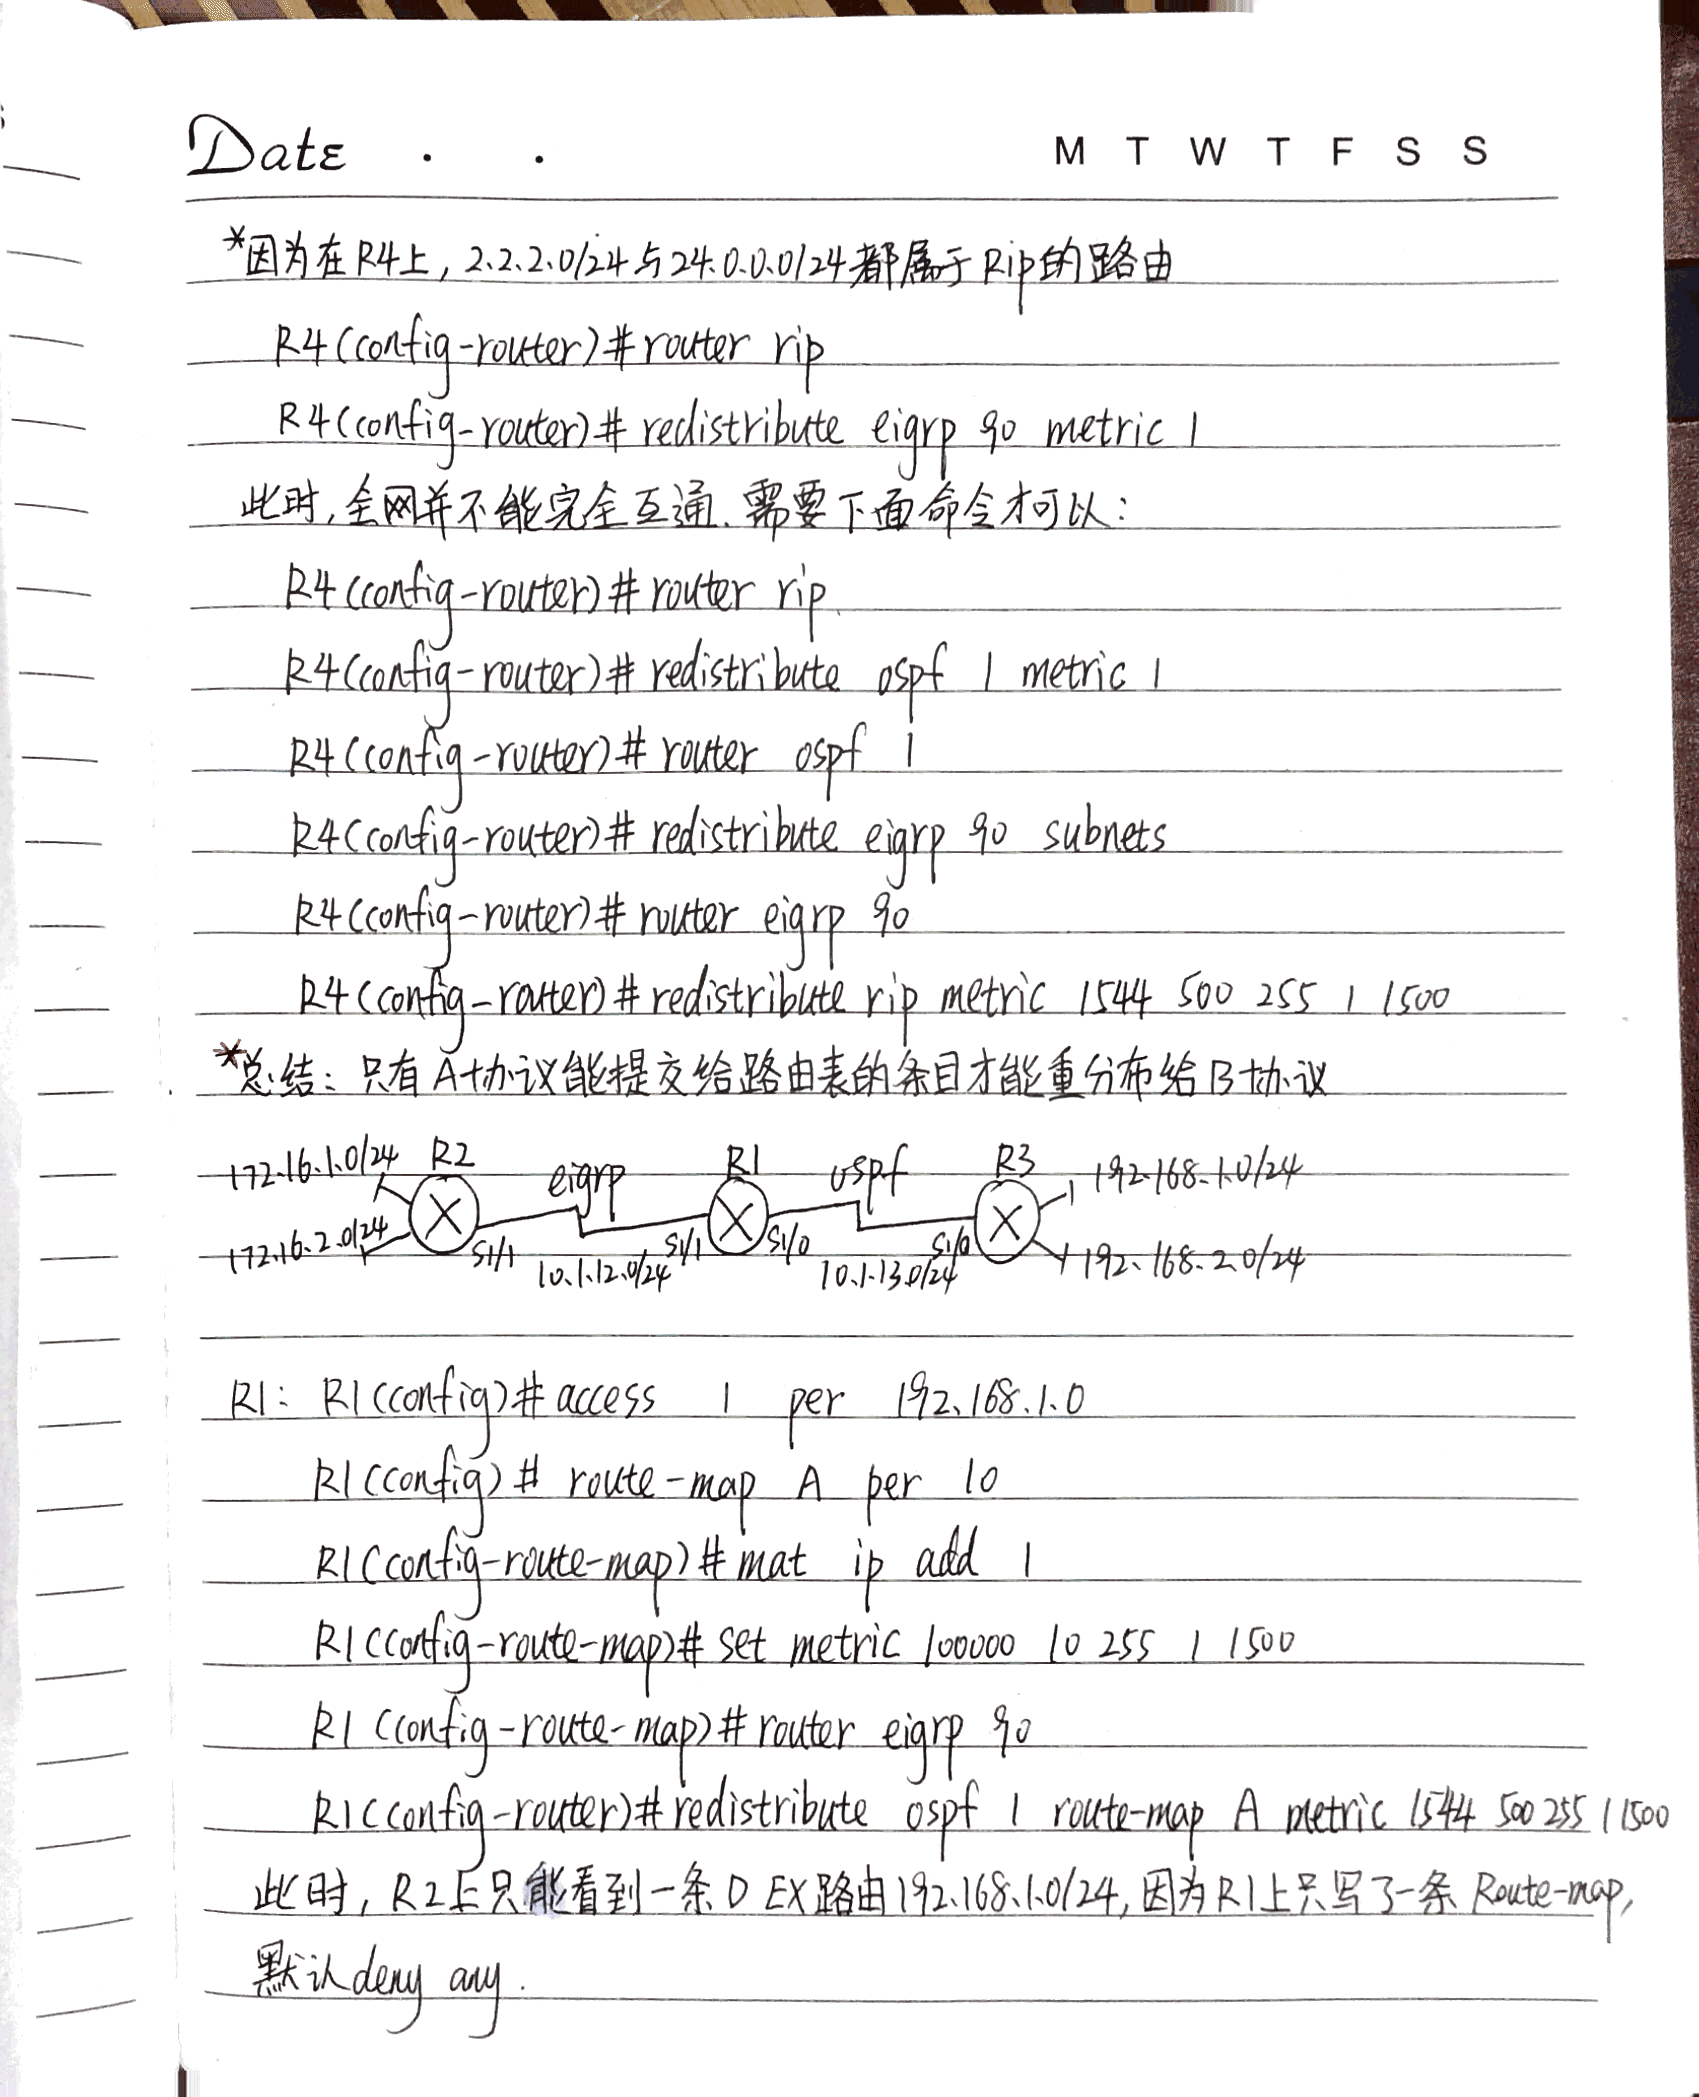 Date . .
M T W T F S S
*因为在R4上, 2.2.2.0/24与24.0.0.0/24都属于Rip的路由
R4(config-router)#router rip
R4(config-router)# redistribute eigrp 90 metric 1
此时,全网并不能完全互通.需要下面命令才可以:
R4(config-router)#router rip
R4(config-router)# redistribute ospf 1 metric 1
R4(config-router)# router ospf 1
R4(config-router)# redistribute eigrp 90 subnets
R4(config-router)# router eigrp 90
R4(config-router)#redistribute rip metric 1544 500 255 1 1500
*总结: 只有A协议能提交给路由表的条目才能重分布给B协议
172.16.1.0/24 R2 eigrp R1 ospf R3 192.168.1.0/24
172.16.2.0/24 S1/1 10.1.12.0/24 S1/1 S1/0 10.1.13.0/24 S1/0 192.168.2.0/24
R1: R1(config)# access 1 per 192.168.1.0
R1(config)# route-map A per 10
R1(config-route-map)#mat ip add 1
R1(config-route-map)# set metric 100000 10 255 1 1500
R1(config-route-map)#router eigrp 90
R1(config-router)#redistribute ospf 1 route-map A metric 1544 500 255 1 1500
此时, R2上只能看到一条D EX路由192.168.1.0/24,因为R1上只写了一条 Route-map,
默认deny any.